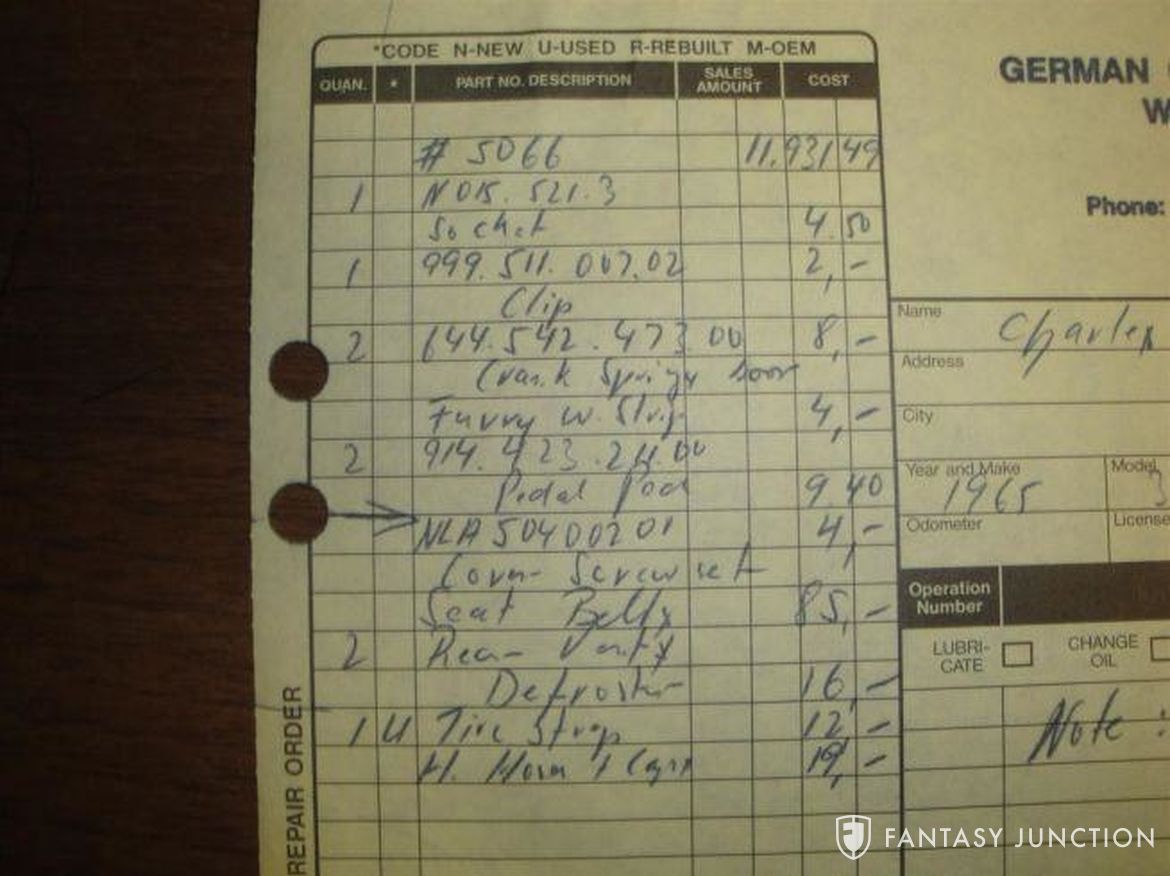 *CODE N-NEW U-USED R-REBUILT M-OEM
QUAN. * PART NO. DESCRIPTION SALES AMOUNT COST
# 5066 11,931 49
1 N015.521.3
Socket 4.50
1 999.511.007.02 2,-
Clip
2 644.542.473.00 8,-
Crank Springs Door
Furry W. Strip 4,-
2 914.423.211.00
Pedal Pad 9 40
NLA 504 002 01 4,-
Cover Screw set
Seat Belts 85,-
2 Rear
Defroster 16,-
1 U Tire Strap 12,-
H. Horn 19,-
REPAIR ORDER
GERMAN
W
Phone:
Name Charles
Address
City
Year and Make 1965 Model 3
Odometer License
Operation Number
LUBRI-CATE CHANGE OIL
Note:
FANTASY JUNCTION